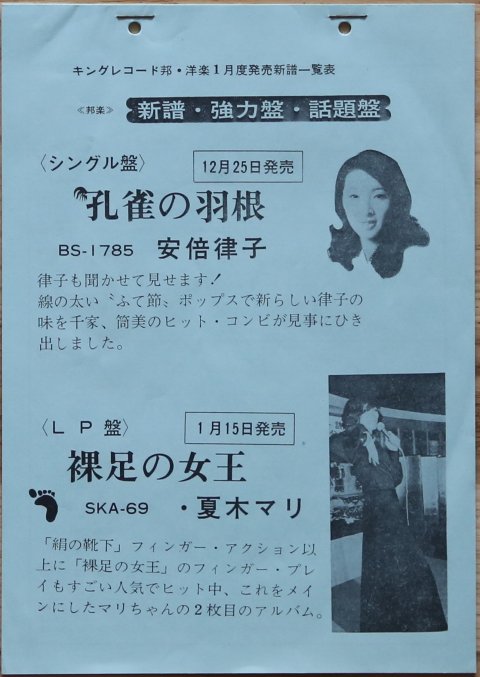 キングレコード邦・洋楽1月度発売新譜一覧表
≪邦楽≫ 新譜・強力盤・話題盤
〈シングル盤〉 12月25日発売
孔雀の羽根
BS-1785 安倍律子
律子も聞かせて見せます!
線の太い〝ふて節〟ポップスで新らしい律子の
味を千家、筒美のヒット・コンビが見事にひき
出しました。
〈LP盤〉 1月15日発売
裸足の女王
SKA-69 ・夏木マリ
「絹の靴下」フィンガー・アクション以
上に「裸足の女王」のフィンガー・プレ
イもすごい人気でヒット中、これをメイ
ンにしたマリちゃんの2枚目のアルバム。